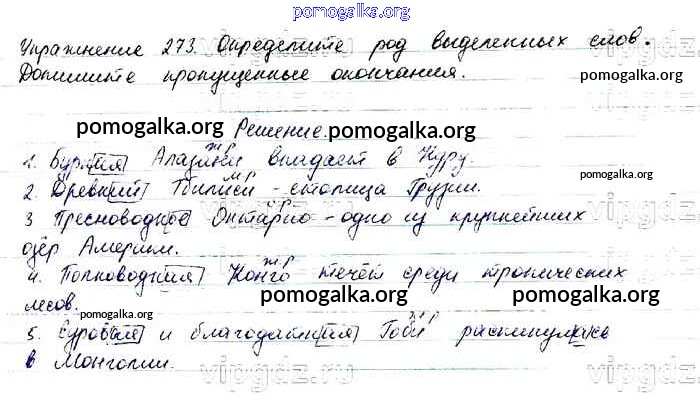 pomogalka.org
Упражнение 273. Определите род выделенных слов.
Допишите пропущенные окончания.
pomogalka.org
vipgdz.ru
pomogalka.org Решение. pomogalka.org
ж.р
1. Бурная Алазани впадает в Куру.
pomogalka.org
м.р
2. Древний Тбилиси - столица Грузии.
ср.р
3 Пресноводное Онтарио - одно из крупнейших
vipgdz
озёр Америки.
ж.р
4. Полноводная Конго течёт среди тропических
pomogalka.org pomogalka.org
лесов.
pomogalka.org
ж.р
5. Суровая и благодатная Гоби раскинулась
в Монголии.
vipgdz.ru
vipgdz.ru